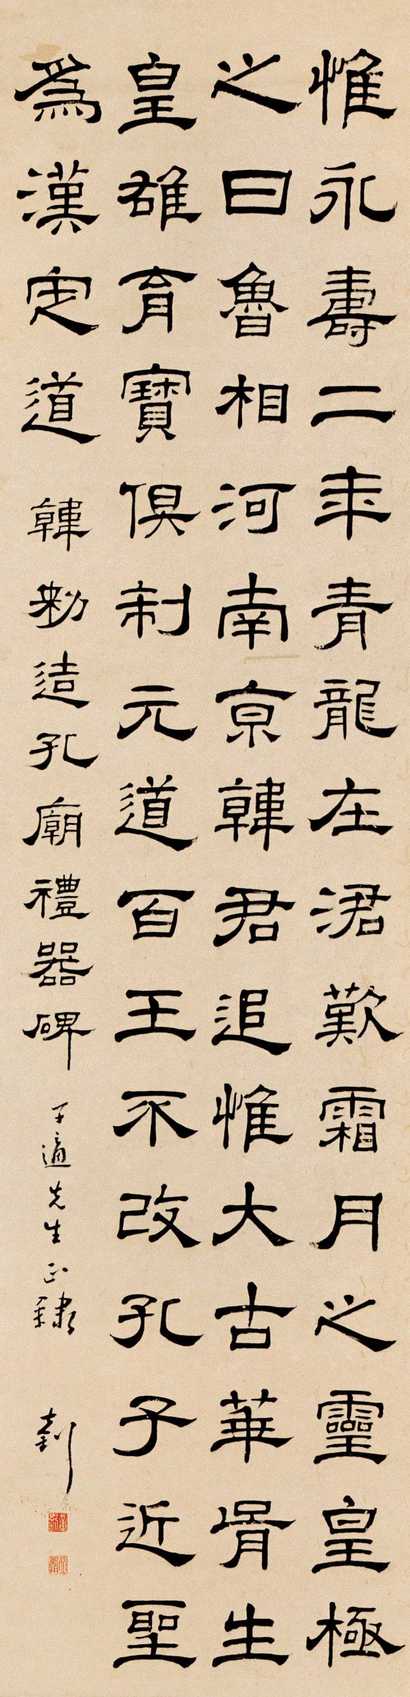 惟永壽二年青龍在涒歎霜月之靈皇極
之日魯相河南京韓君追惟大古華胥生
皇雄育寶俱制元道百王不改孔子近聖
為漢定道 韓勑造孔廟禮器碑 子適先生正隸